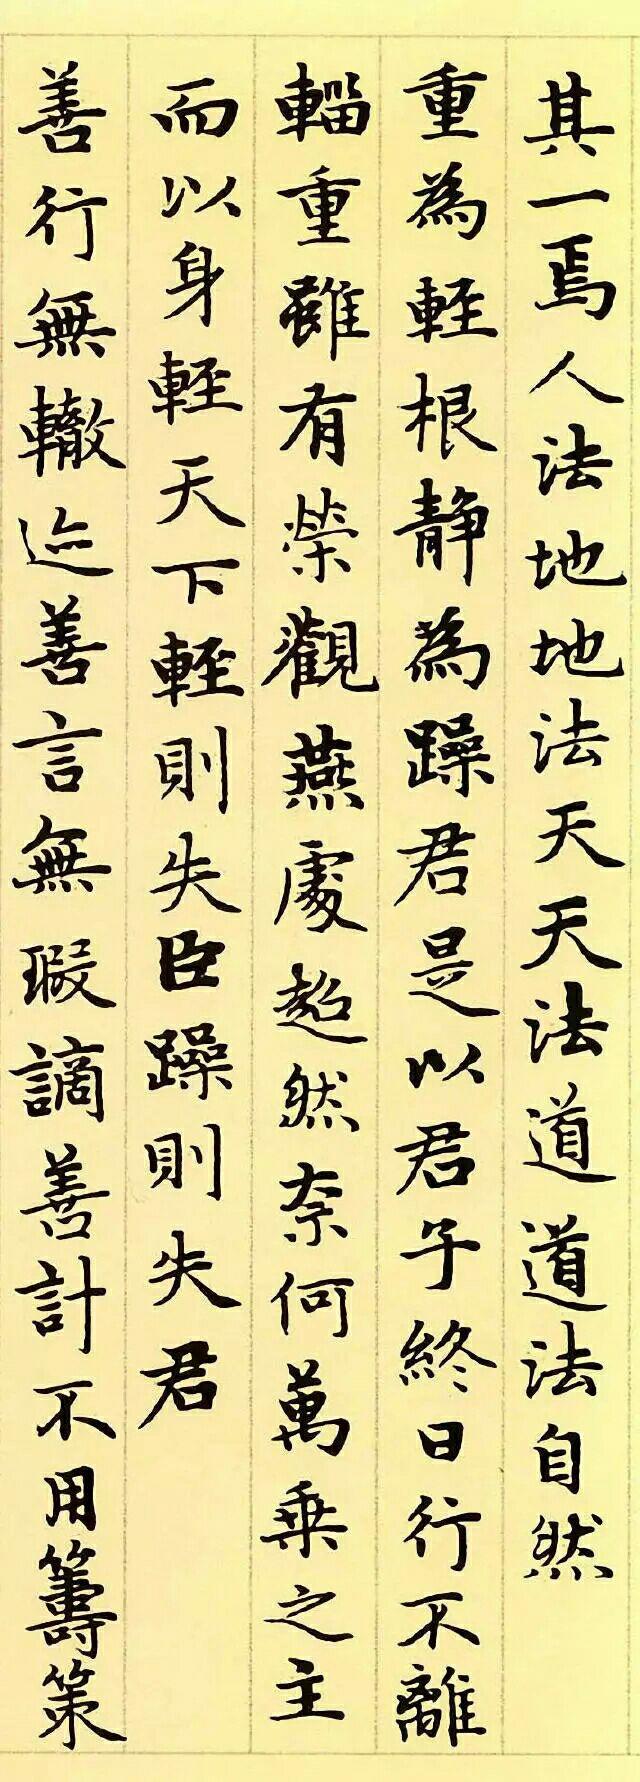 其一焉人法地地法天天法道道法自然
重為輕根静為躁君是以君子終日行不離
輜重雖有榮觀燕處超然奈何萬乗之主
而以身輕天下輕則失臣躁則失君
善行無轍迹善言無瑕謫善計不用籌策